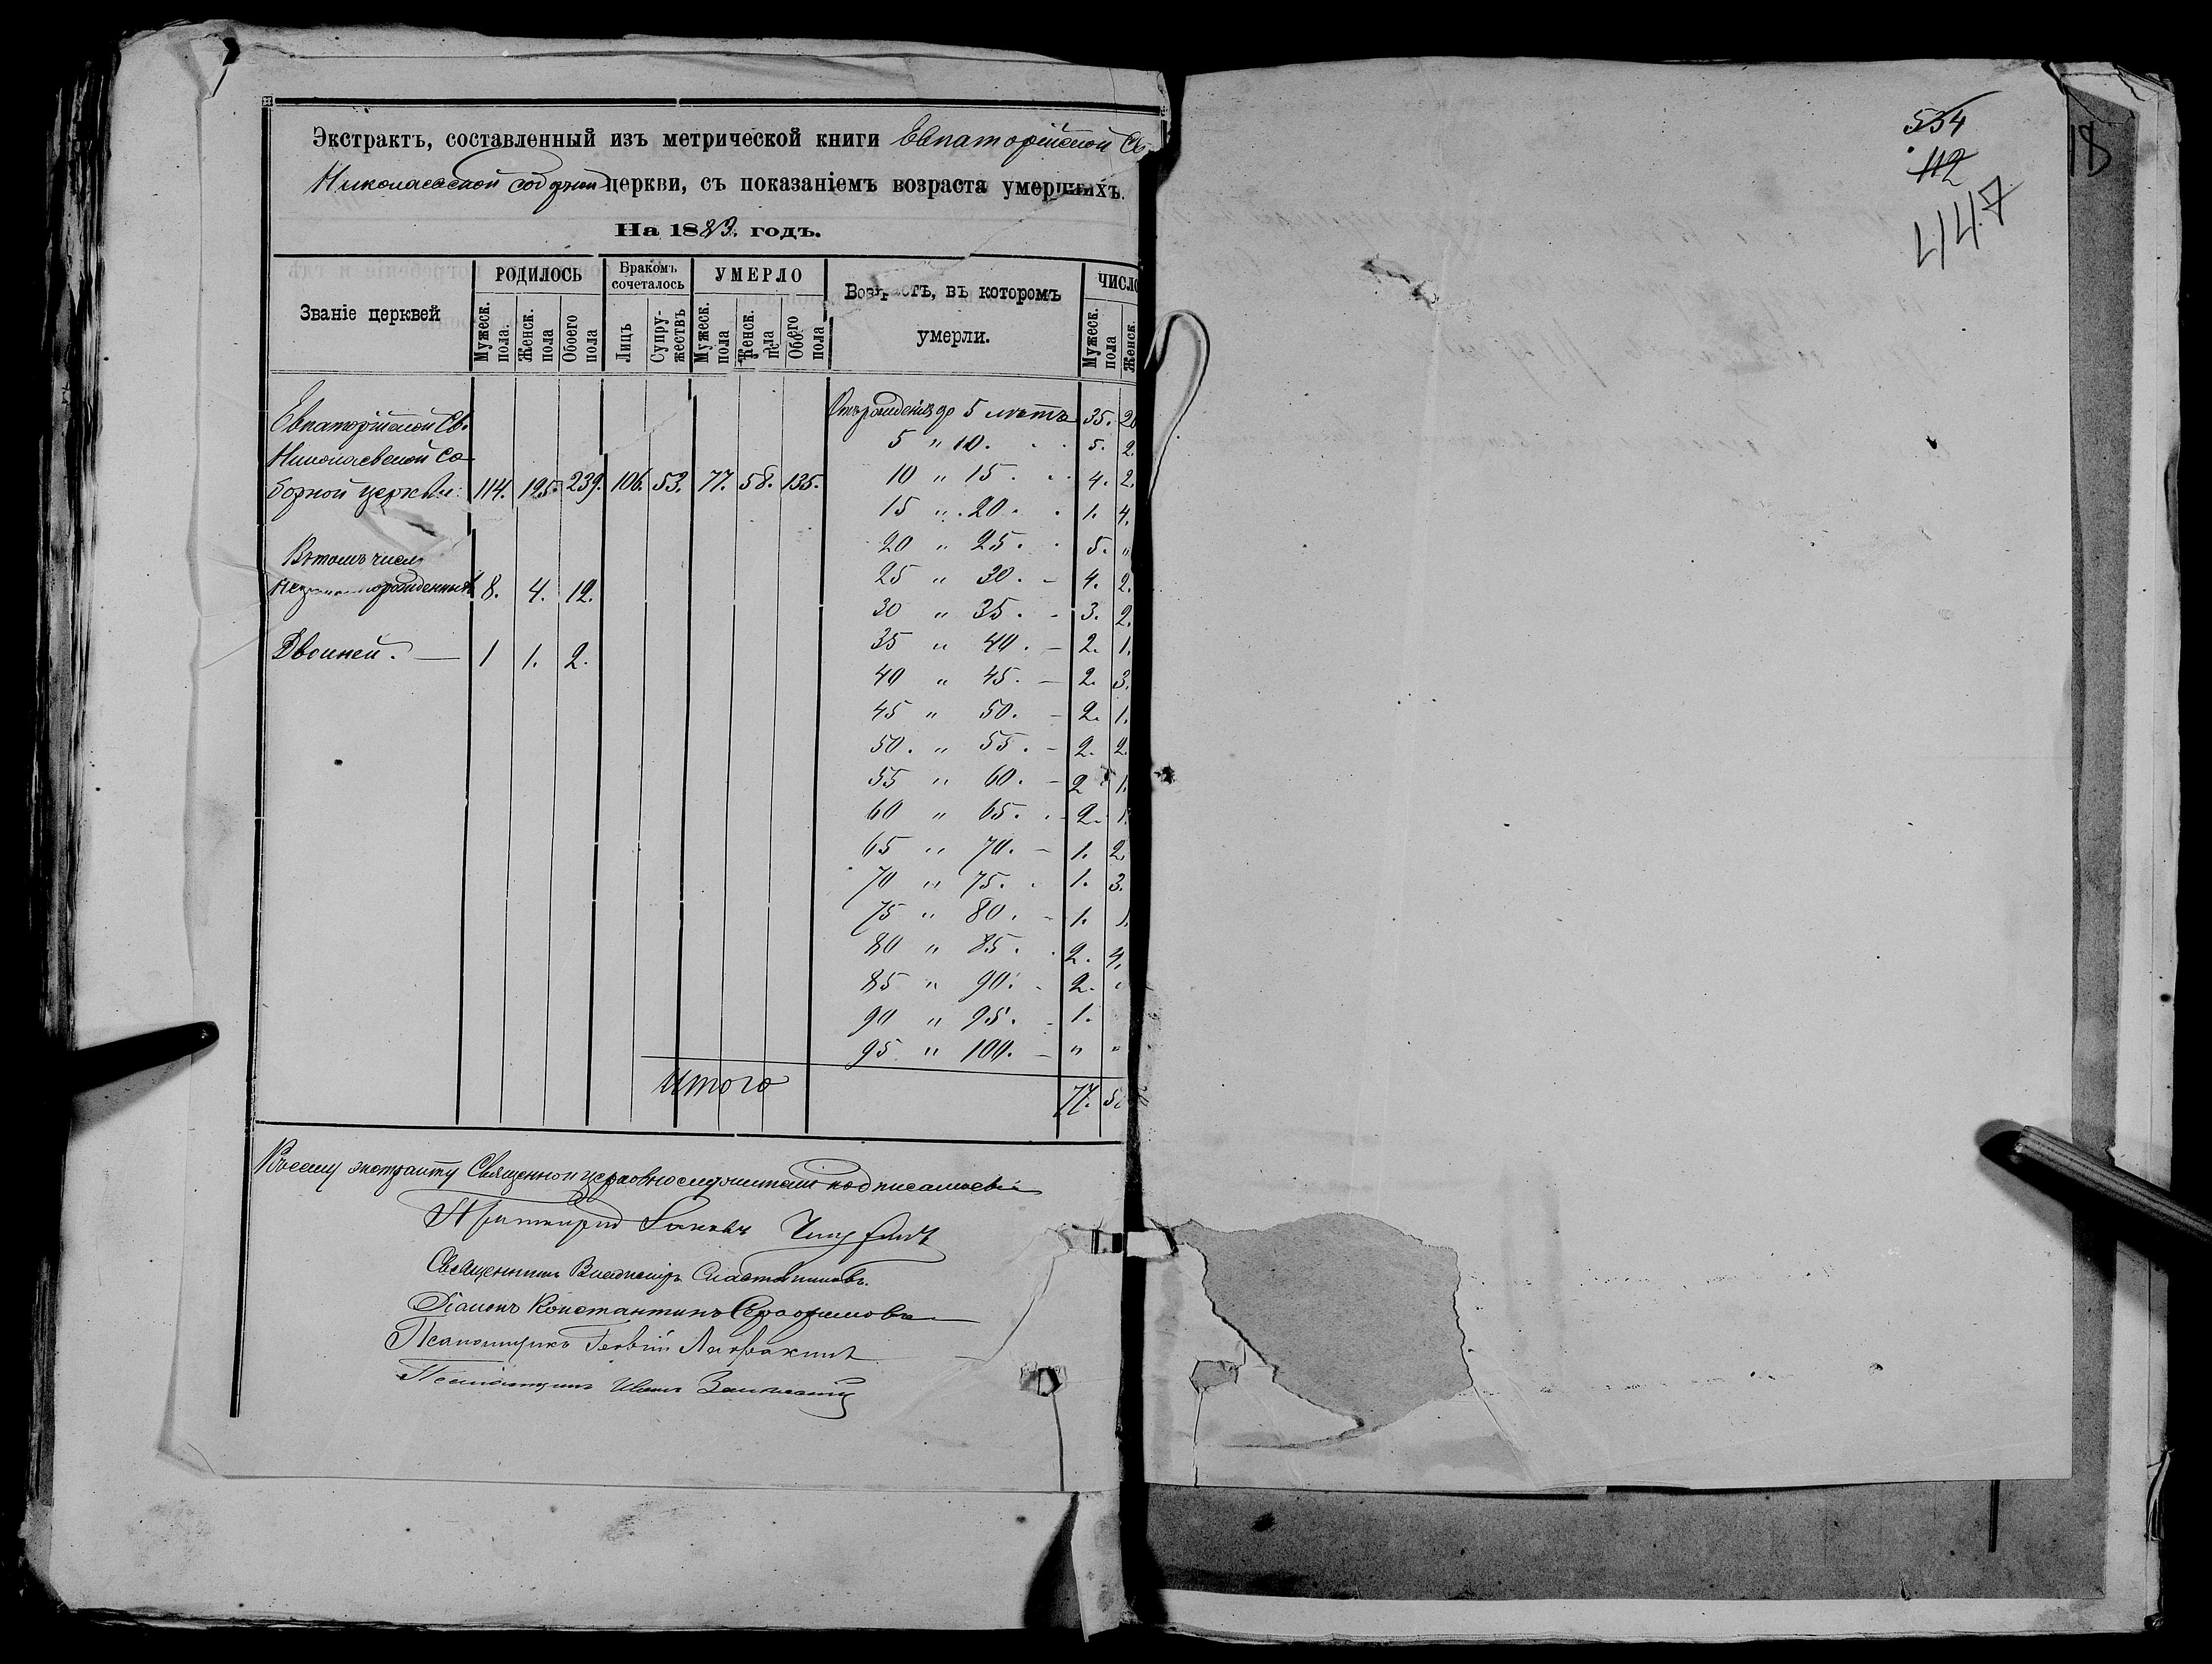 Экстрактъ, составленный изъ метрической книги Евпаторійской Св.
Николаевской соборной церкви, съ показаніемъ возраста умершихъ.
На 1883. годъ.
Званіе церквей
РОДИЛОСЬ
Бракомъ сочеталось
УМЕРЛО
Возрастъ, въ которомъ умерли.
ЧИСЛО
Мужеск. пола.
Женск. пола
Обоего пола
Лицъ
Супружествъ
Мужеск. пола
Женск. пола
Обоего пола
Мужеск. пола
Женск.
Евпаторійской Св.
Николаевской Со-
борной церкви 114. 125. 239. 106. 53. 77. 58. 135.
Въ томъ числѣ
незаконнорожденныхъ 8. 4. 12.
Двойней. — 1 1. 2.
Отъ рожденія до 5 лѣтъ 35.
5 " 10. 5. 2.
10 " 15. 4. 2.
15 " 20. 1. 4.
20 " 25. 5. "
25 " 30. 4. 2.
30 " 35. 3. 2.
35 " 40. 2. 1.
40 " 45. 2. 3.
45 " 50. 2. 1.
50. " 55. 2. 2.
55 " 60. 2 1.
60 " 65. 2. 1.
65 " 70. 1. 2.
70 " 75. 1. 3.
75 " 80. 1. 1.
80 " 85. 2.
85 " 90. 2.
90 " 95. 1.
95 " 100. " "
Итого 77.
Къ сему экстракту Священно и церковнослужители подписались:
Священникъ Владиміръ
Діаконъ Константинъ Серафимовъ
Псаломщикъ
Псаломщикъ Иванъ
554
112
447
18